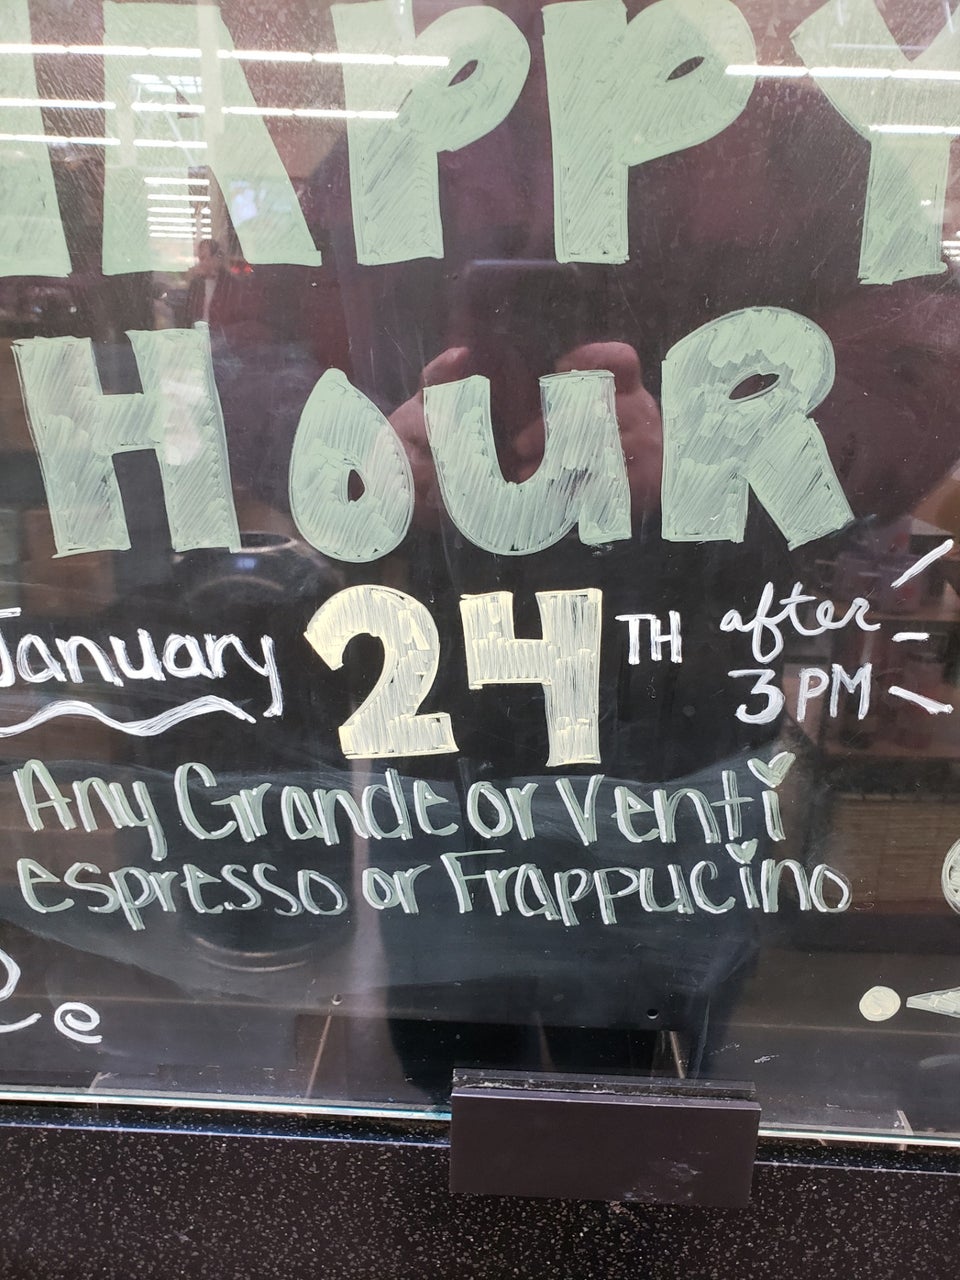 HAPPY
HOUR
January 24TH after
3PM
Any Grande or Venti
espresso or Frappucino